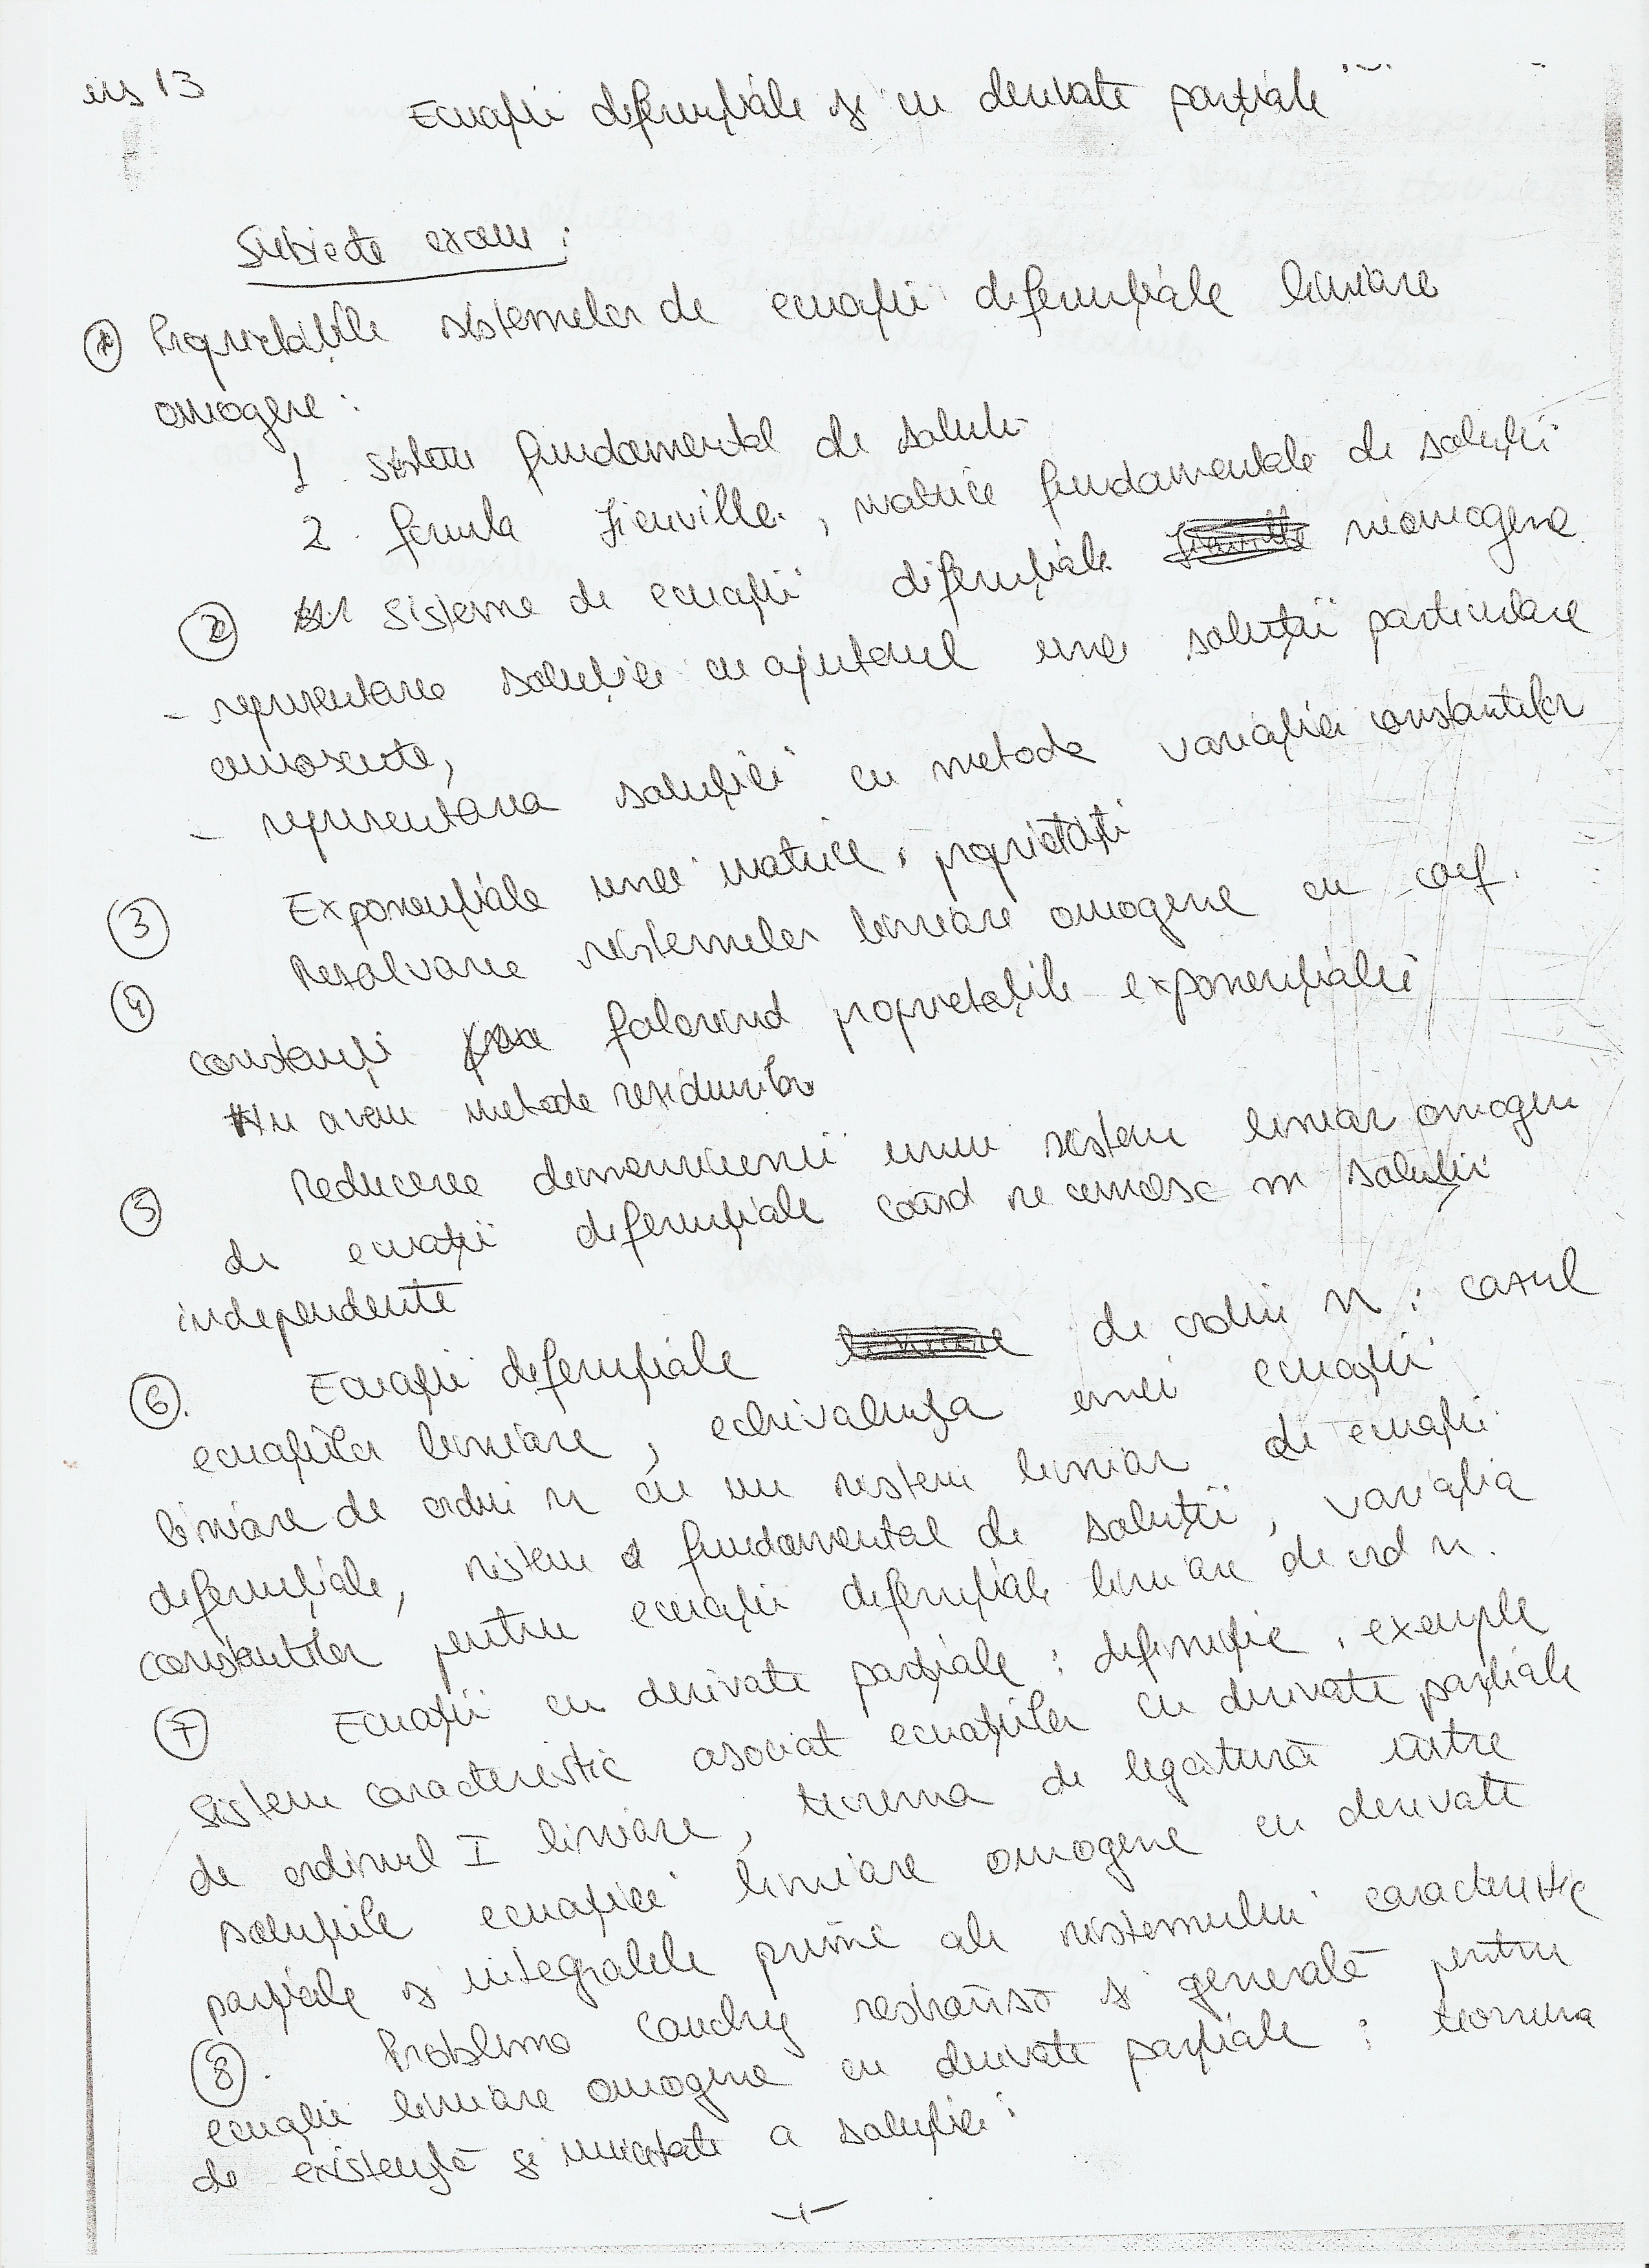 urs 13
Ecuații diferențiale și cu derivate parțiale
Subiecte exam :
① Proprietățile sistemelor de ecuații diferențiale liniare
omogene :
1. sistem fundamental de soluții
2. formula Liouville, matrice fundamentale de soluții
② Sisteme de ecuații diferențiale neomogene
- reprezentarea soluției cu ajutorul unei soluții particulare
cunoscute,
- reprezentarea soluției cu metoda variației constantelor
③ Exponențiale unei matrice, proprietăți
④ Rezolvarea sistemelor liniare omogene cu coef.
constanți folosind proprietățile exponențialei
Nu avem metoda reziduurilor
⑤ Reducerea dimensiunii unui sistem liniar omogen
de ecuații diferențiale când se cunosc m soluții
independente
⑥. Ecuații diferențiale de ordin n : cazul
ecuațiilor liniare, echivalența unei ecuații
liniare de ordin n cu un sistem liniar de ecuații
diferențiale, sistem fundamental de soluții, variația
constantelor pentru ecuații diferențiale liniare de ord n.
⑦ Ecuații cu derivate parțiale : definiție, exemple
Sistem caracteristic asociat ecuațiilor cu derivate parțiale
de ordinul I liniare, teorema de legătură între
soluțiile ecuației liniare omogene cu derivate
parțiale și integralele prime ale sistemului caracteristic
⑧. Problema Cauchy restrânsă și generală pentru
ecuații liniare omogene cu derivate parțiale ; teorema
de existență și unicitate a soluției :